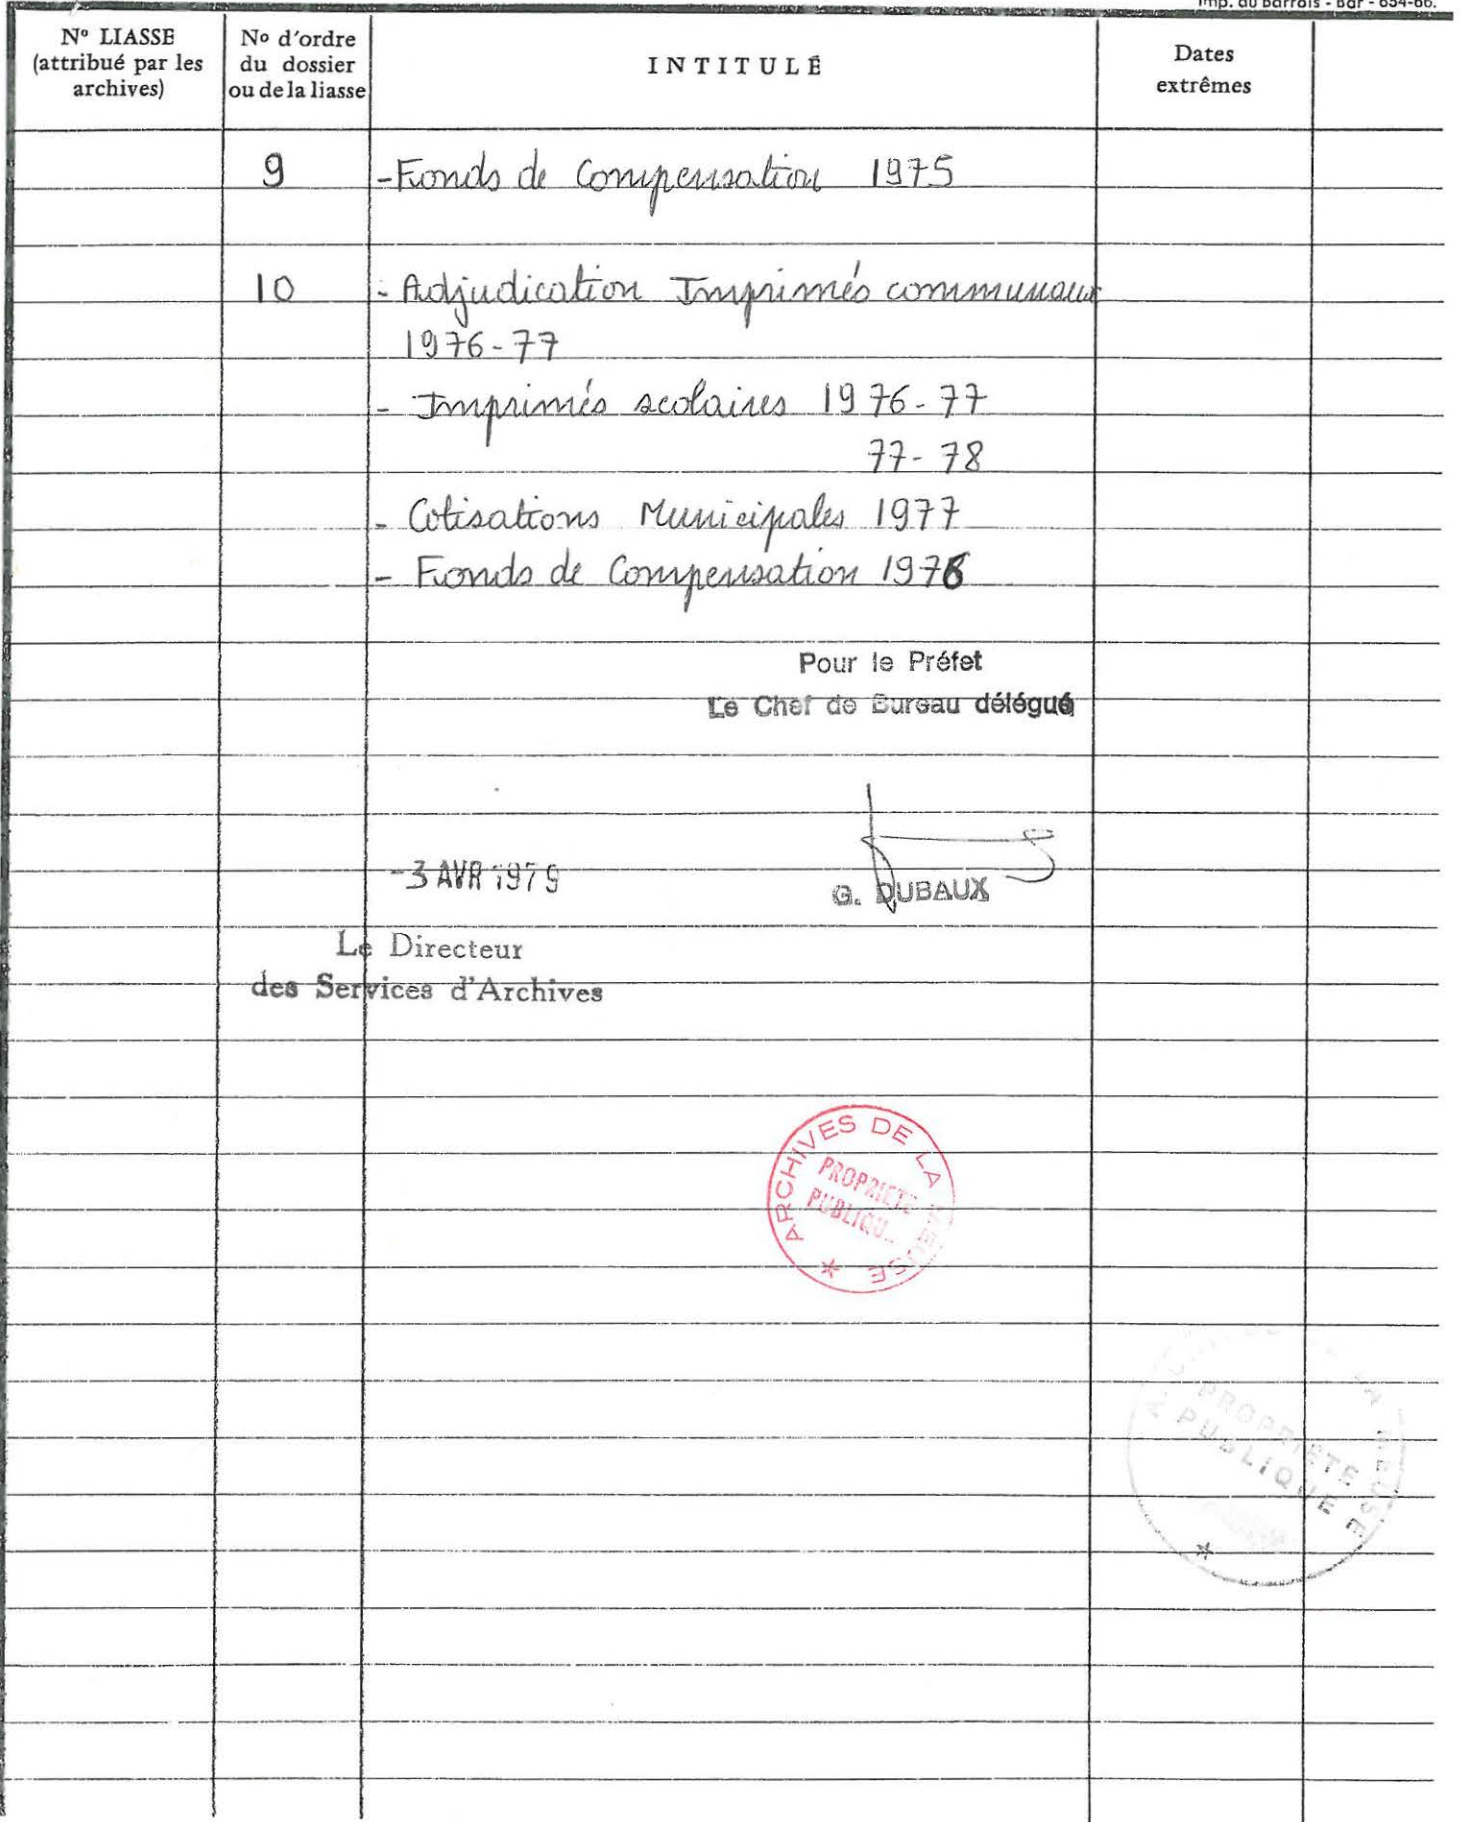 Imp. du Barrois - Bar - 654-66.
N° LIASSE
(attribué par les
archives)
N° d'ordre
du dossier
ou de la liasse
INTITULÉ
Dates
extrêmes
9 - Fonds de Compensation 1975
10 - Adjudication Imprimés communaux
1976-77
- Imprimés scolaires 1976-77
77-78
- Cotisations Municipales 1977
- Fonds de Compensation 1976
Pour le Préfet
Le Chef de Bureau délégué
-3 AVR 1979
G. DUBAUX
Le Directeur
des Services d'Archives
ARCHIVES DE LA MEUSE *
PROPRIETE
PUBLIQU
LA MEUSE *
PROPRIETE
PUBLIQUE